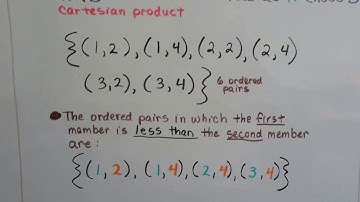 Cartesian product
{(1,2),(1,4),(2,2),(2,4)
(3,2),(3,4)} 6 ordered
pairs
●The ordered pairs in which the first
member is less than the second member
are:
{(1,2),(1,4),(2,4),(3,4)}